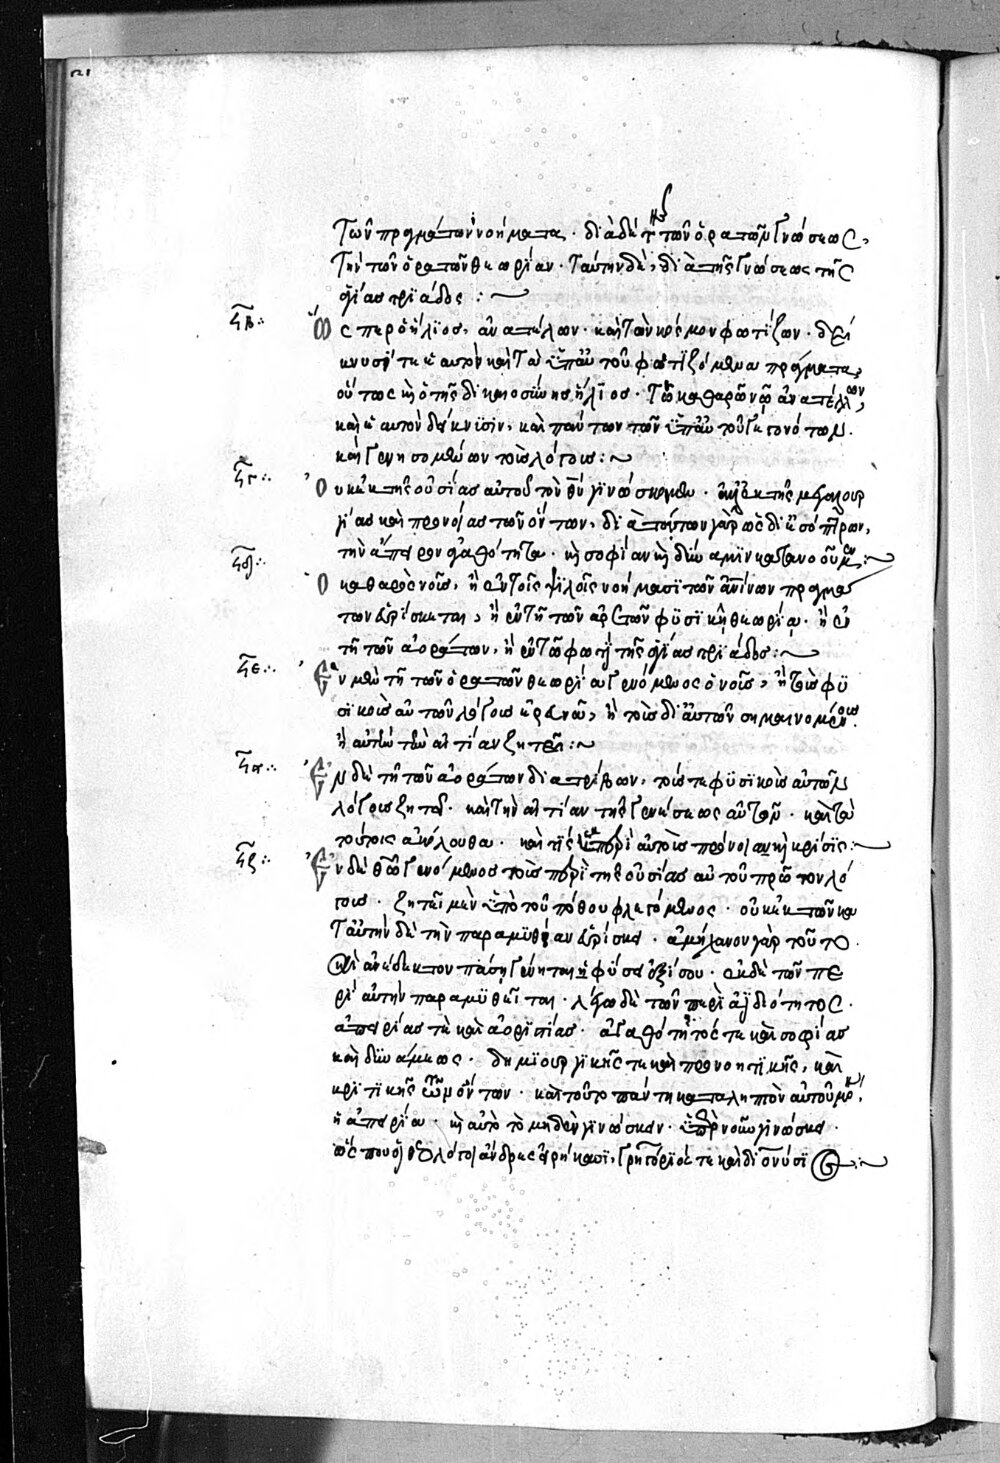 Τῶν πραγμάτων νοήματα · διὰ δὲ τῆς τῶν ὁρατῶν γνώσεως,
τὴν τῶν ἀοράτων θεωρίαν · ταύτην δὲ, διὰ τῆς γνώσεως τῆς
ἁγίας τριάδος :~
ϟε :· Ὥσπερ ὁ ἥλιος ἀνατέλλων · καὶ τὸν κόσμον φωτίζων · δεί
κνυσί τε ἑαυτὸν καὶ τὰ ὑπ' αὐτοῦ φωτιζόμενα πράγματα,
οὕτως κὴ ὁ τῆς δικαιοσύνης ἥλιος · τῶ καθαρῶ νῶ ἀνατέλλων,
καὶ ἑαυτὸν δείκνισιν, καὶ πάντων τῶν ὑπ' αὐτοῦ γεγονότων
καὶ γενησομένων τοὺς λόγους :~
ϟϛ :· Οὐκ ἐκ τῆς οὐσίας αὐτοῦ τὸν θν γινώσκομεν · ἀλλ' ἐκ τῆς μεγαλουρ
γίας καὶ προνοίας τῶν ὄντων, διὰ τούτων γὰρ ὡς δι' ἐσόπτρων,
τὴν ἄπειρον ἀγαθότητα · κὴ σοφίαν κὴ δύναμιν κατανοοῦμεν :~
Ὁ καθαρὸς νοῦς, ἢ ἐν τοῖς ψιλοῖς νοήμασι τῶν ἀνίνων πραγμά
των εὑρίσκεται, ἢ ἐν τῆ τῶν ὁρατῶν φυσικῆ θεωρία · ἢ ἐν
τῆ τῶν ἀοράτων, ἢ ἐν τῶ φωτὶ τῆς ἁγίας τριάδος :~
Ἐν μὲν τῆ τῶν ὁρατῶν θεωρία γενόμενος ὁ νοῦς, ἢ τοὺς φυ
σικοὺς αὐτῶν λόγους ἐρευνᾶ, ἢ τοὺς δι' αὐτῶν σημαινομένους
ἢ αὐτὴν τὴν αἰτίαν ζητεῖ :~
Ἐν δὲ τῆ τῶν ἀοράτων διατρίβων, τούς τε φυσικοὺς αὐτῶν
λόγους ζητεῖ · καὶ τὴν αἰτίαν τῆς γενέσεως αὐτῶν · καὶ τὰ
τούτοις ἀκόλουθα · καὶ τίς ἡ περὶ αὐτοὺς πρόνοια κὴ κρίσις :~
Ἐν δὲ θῶ γενόμενος τοὺς περὶ τῆς οὐσίας αὐτοῦ πρῶτον λό
γους · ζητεῖ μὲν ὑπὸ τοῦ πόθου φλεγόμενος · οὐκ ἐκ τῶν κα
τ' αὐτὴν δὲ τὴν παραμυθίαν εὑρίσκει · ἀμήχανον γὰρ τοῦτο ·
καὶ ἀνένδεκτον πάση γενητῆ φύσει ἐξίσου · ἐκ δὲ τῶν πε
ρὶ αὐτὴν παραμυθεῖται · λέγω δὲ τῶν περὶ ἀϊδιότητος ·
ἀπειρίας τὲ καὶ ἀοριστίας · ἀγαθότητός τε καὶ σοφίας
καὶ δυνάμεως · δημιουργικῆς τε καὶ προνοητικῆς, καὶ
κριτικῆς τῶν ὄντων · καὶ τοῦτο πάντη καταληπτὸν αὐτοῦ μόνον,
ἡ ἀπειρία · κὴ αὐτὸ τὸ μηδὲν γινώσκειν · ὑπὲρ νοῦν γινώσκειν ·
ὥς που οἱ θεολόγοι ἄνδρες εἰρήκασι, Γρηγόριός τε καὶ διονύσιος :~